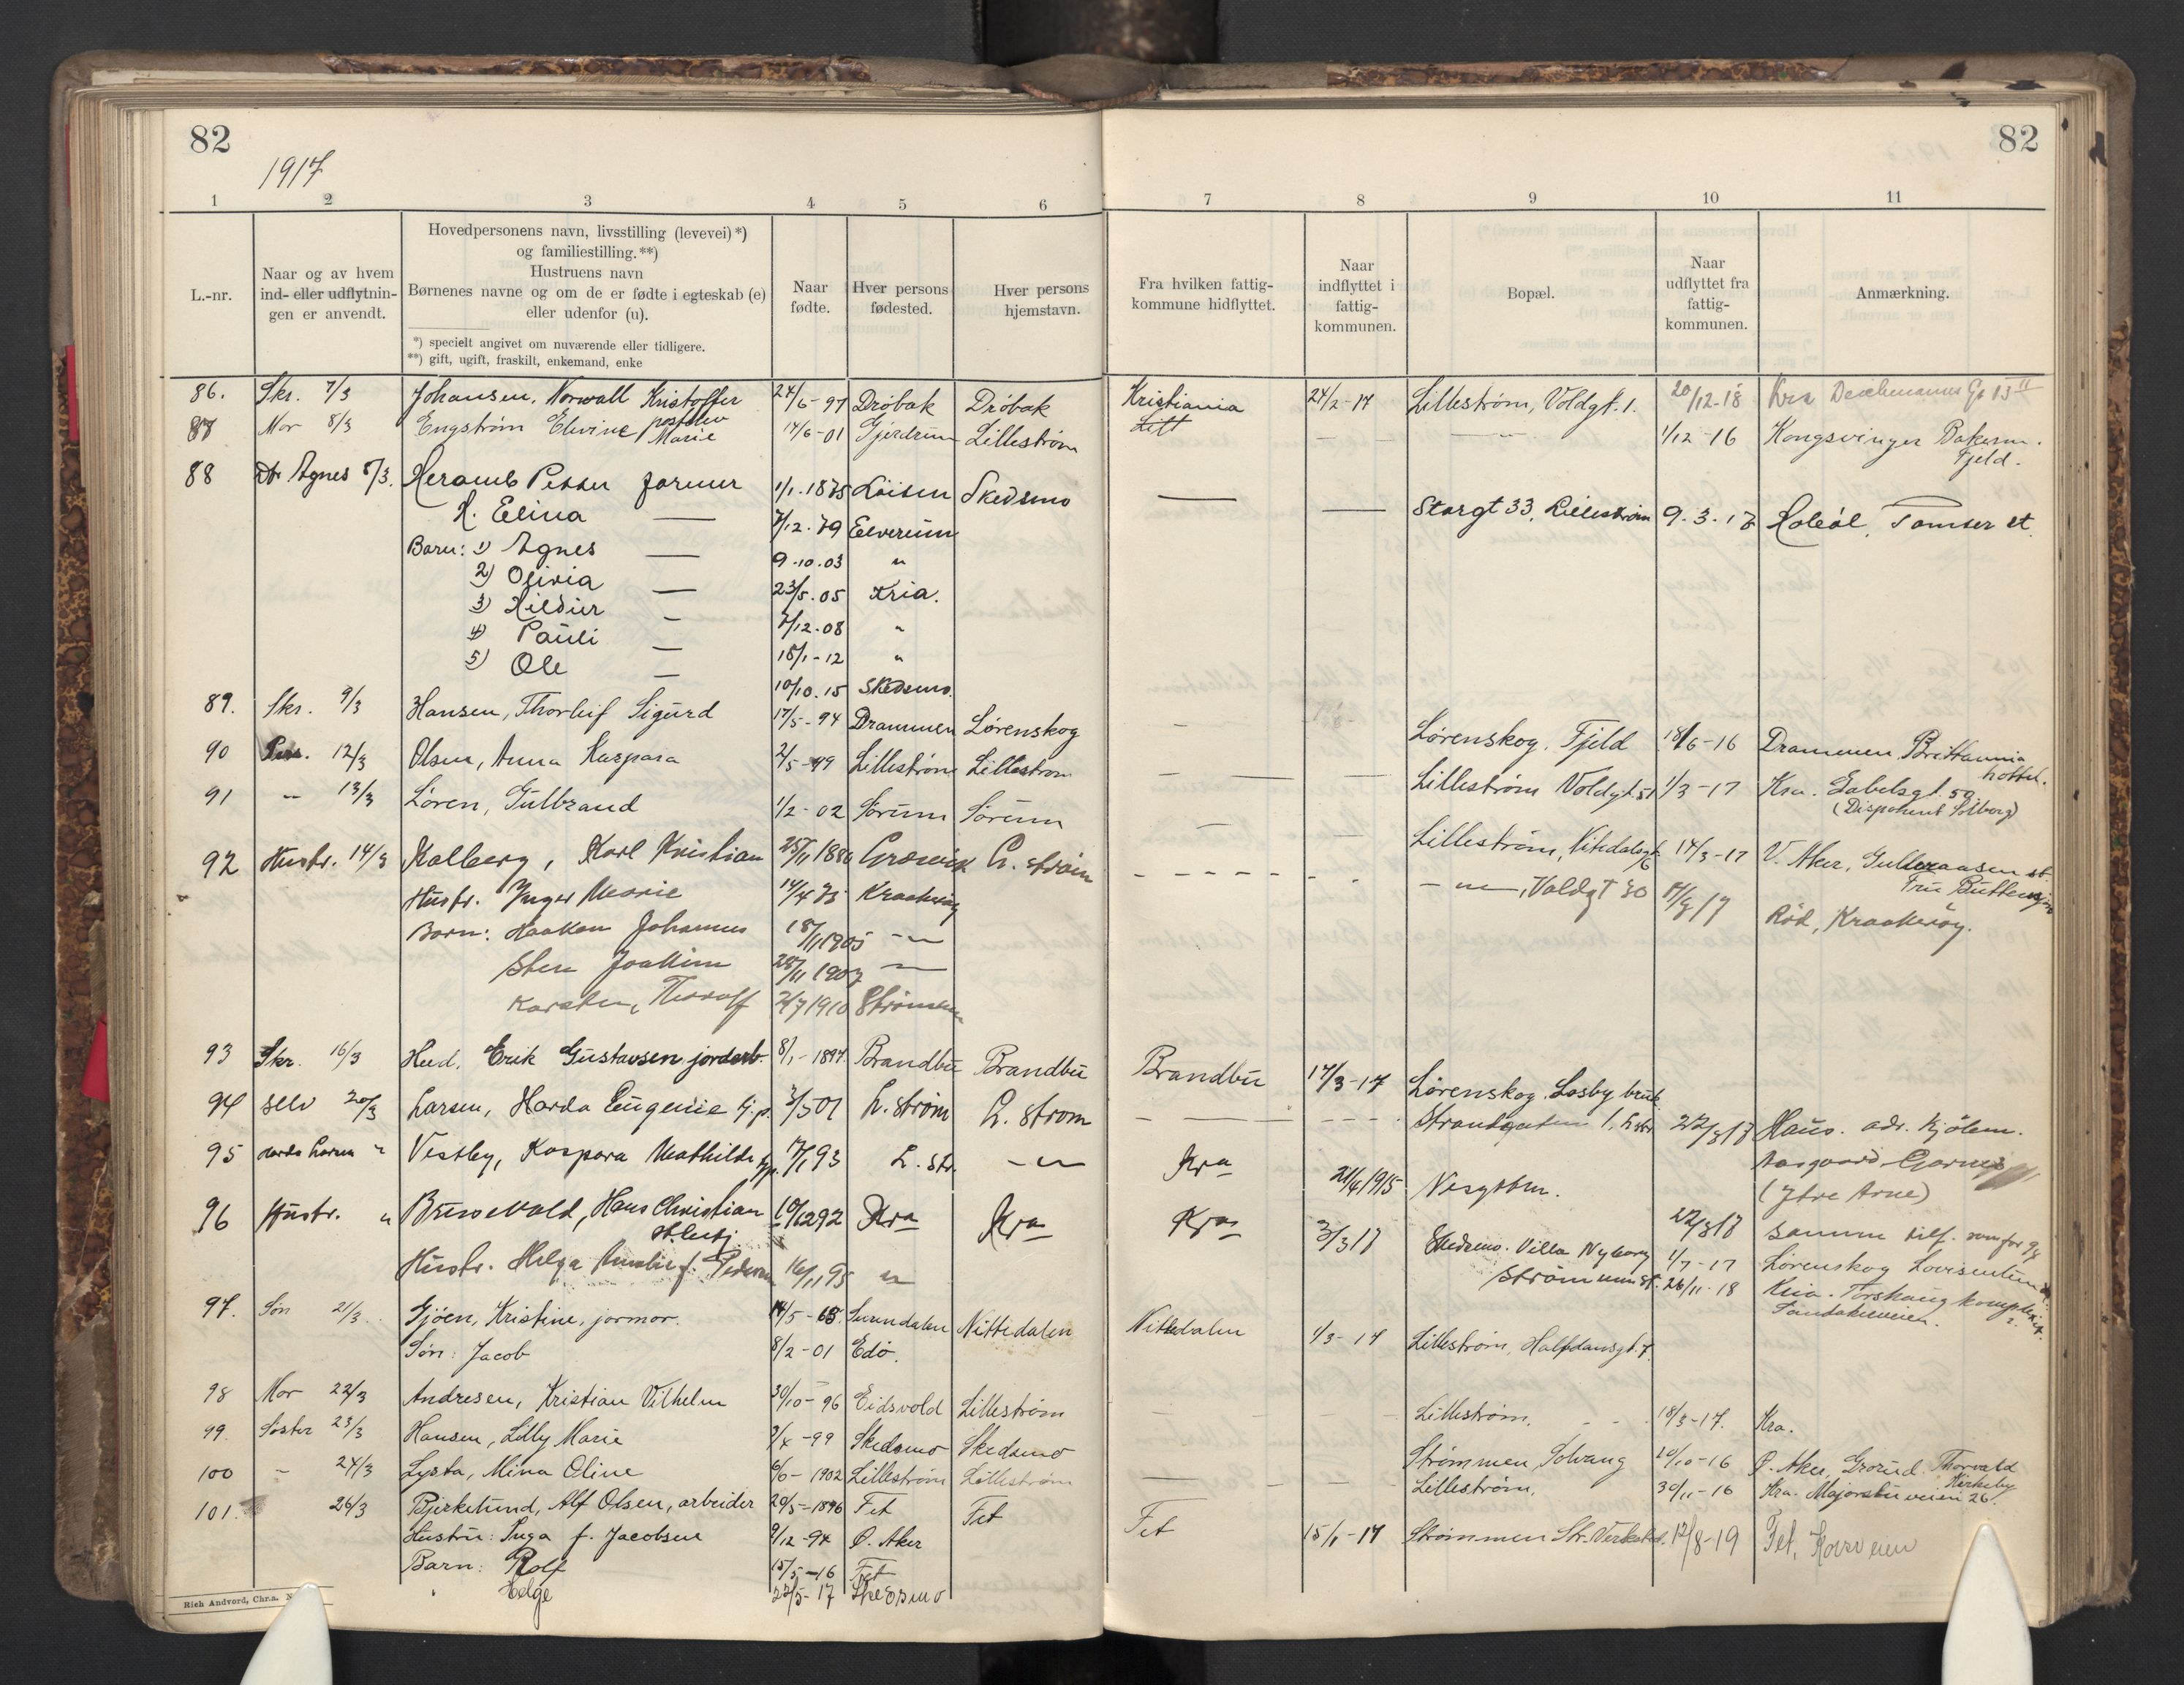 82
82
1917
1 2 3 4 5 6 7 8 9 10 11
L.-nr.
Naar og av hvem ind- eller udflytnin-gen er anvendt.
Hovedpersonens navn, livsstilling (levevei) *)
og familiestilling. **)
Hustruens navn
Børnenes navne og om de er fødte i egteskab (e)
eller udenfor (u).
*) specielt angivet om nuværende eller tidligere.
**) gift, ugift, fraskilt, enkemand, enke
Naar fødte.
Hver persons fødested.
Hver persons hjemstavn.
Fra hvilken fattig-kommune hidflyttet.
Naar indflyttet i fattig-kommunen.
Bopæl.
Naar udflyttet fra fattig-kommunen.
Anmærkning.
86. Skr. 7/3 Johansen, Norwall Kristoffer 24/6-97 Drøbak Drøbak Kristiania 24/2-17 Lillestrøm, Voldgt. 1. 20/12-18 Kra
87 Mor 8/3 Engstrøm Elvine Marie 14/6-01 Gjerdrum Lillestrøm 1/12-16 Kongsvinger Bakerm. Fjeld.
88 Dtr Agnes 8/3. Heramb Petter 1/1.1875 Løiten Skedsmo Storgt 33, Lillestrøm 9.3.17 Holøl, Tomter st.
H. Elina — 7/12.79 Elverum
Barn: 1) Agnes — 9.10.03 "
2) Olivia — 23/5.05 Kria.
3) Hildur — 7/12.08 "
4) Pauli — 18/1-12 "
5) Ole — 10/10.15 Skedsmo.
89. Skr. 9/3 Hansen, Thorleif Sigurd 17/5-94 Drammen Lørenskog — Lørenskog, Fjeld 18/6-16 Drammen, Brittannia hottel.
90 Pers. 12/3 Olsen, Anna Kaspara 2/5-99 Lillestrøm Lillestrøm — Lillestrøm Voldgt. 51 1/3-17 Kra. Gabelsgt. 50 (Disponent Solberg)
91 — 13/3 Løren, Gulbrand 1/2-02 Sørum Sørum — Lillestrøm, Nitedalsgt. 6 14/3-17 V. Aker, Gulleraasen st.
92 Hustr. 14/3 Kalberg, Karl Kristian L. strøm —"—, Voldgt 30 Rød, Kraakerøy.
Hustr. Inger Marie 14/4 75 Kraakerøy
Barn: Haakon Johannes 18/11 1905 —"—
Sten Joakim 28/11 1907 —"—
Karsten, Thoralf 2/7 1910 Strømmen
93 Skr. 16/3 Hed. Erik Gustavsen jordarb. 8/1-1897. Brandbu Brandbu Brandbu 17/3-17 Lørenskog. Losby bruk.
94 Selv 20/3 Larsen, Harda Eugenie tj.p. 3/5 01 L. strøm L. strøm Strandgaten 1, L.str. 22/3 17 Haus. adr. Kjølem. Aasgaard Garnes (Ytre Arne)
95 Harda Larsen " Vestby, Kaspara Mathilde tj.p. 17/1 93 L. str. —"— Kra 21/4 1915 22/3 17 samme tilf. som for 94
96 Hustr. " Brunevold, Hans Christian 10/12 92 Kra Kra Kra 3/3 17 Skedsmo. Villa Nyborg Strømmen st. 1/7-17 Lørenskog Lovisenlund
Hustr. Helga Amalie f. Pedersen 16/11 95 " 26/11-18 Kria.
97. Søn 21/3. Gjøen, Kristine, jormor. 14/5-65 Surendalen Nittedalen Nittedalen 1/3-17 Lillestrøm, Halfdansgt. 7.
Søn: Jacob 8/2-01 Edø.
98 Mor 22/3 Andresen, Kristian Vilhelm 30/10-96 Eidsvold Lillestrøm Lillestrøm. 18/3-17. Kra.
99. Søster 23/3 Hansen, Lilly Marie 9/4-99 Skedsmo Skedsmo Strømmen, Solvang 20/10-16 Ø. Aker, Grorud. Thorvald Kirkeby
100 — 24/3 Lysta, Mina Oline 6/6-1902 Lillestrøm Lillestrøm — Lillestrøm. 30/11-16 Kra. Majorstuveien 26.
101. 26/3 Bjerkelund, Alf Olsen, arbeider 20/5-1896 Fet Fet Fet 15/1-17 Strømmen Str. Verksted. 12/8-19 Fet,
Hustru: Inga f. Jacobsen 9/12-94 Ø. Aker
Barn: Rolf 15/5-16 Fet
Helge 22/5-17 Skedsmo
Rich Andvord, Chr.a.